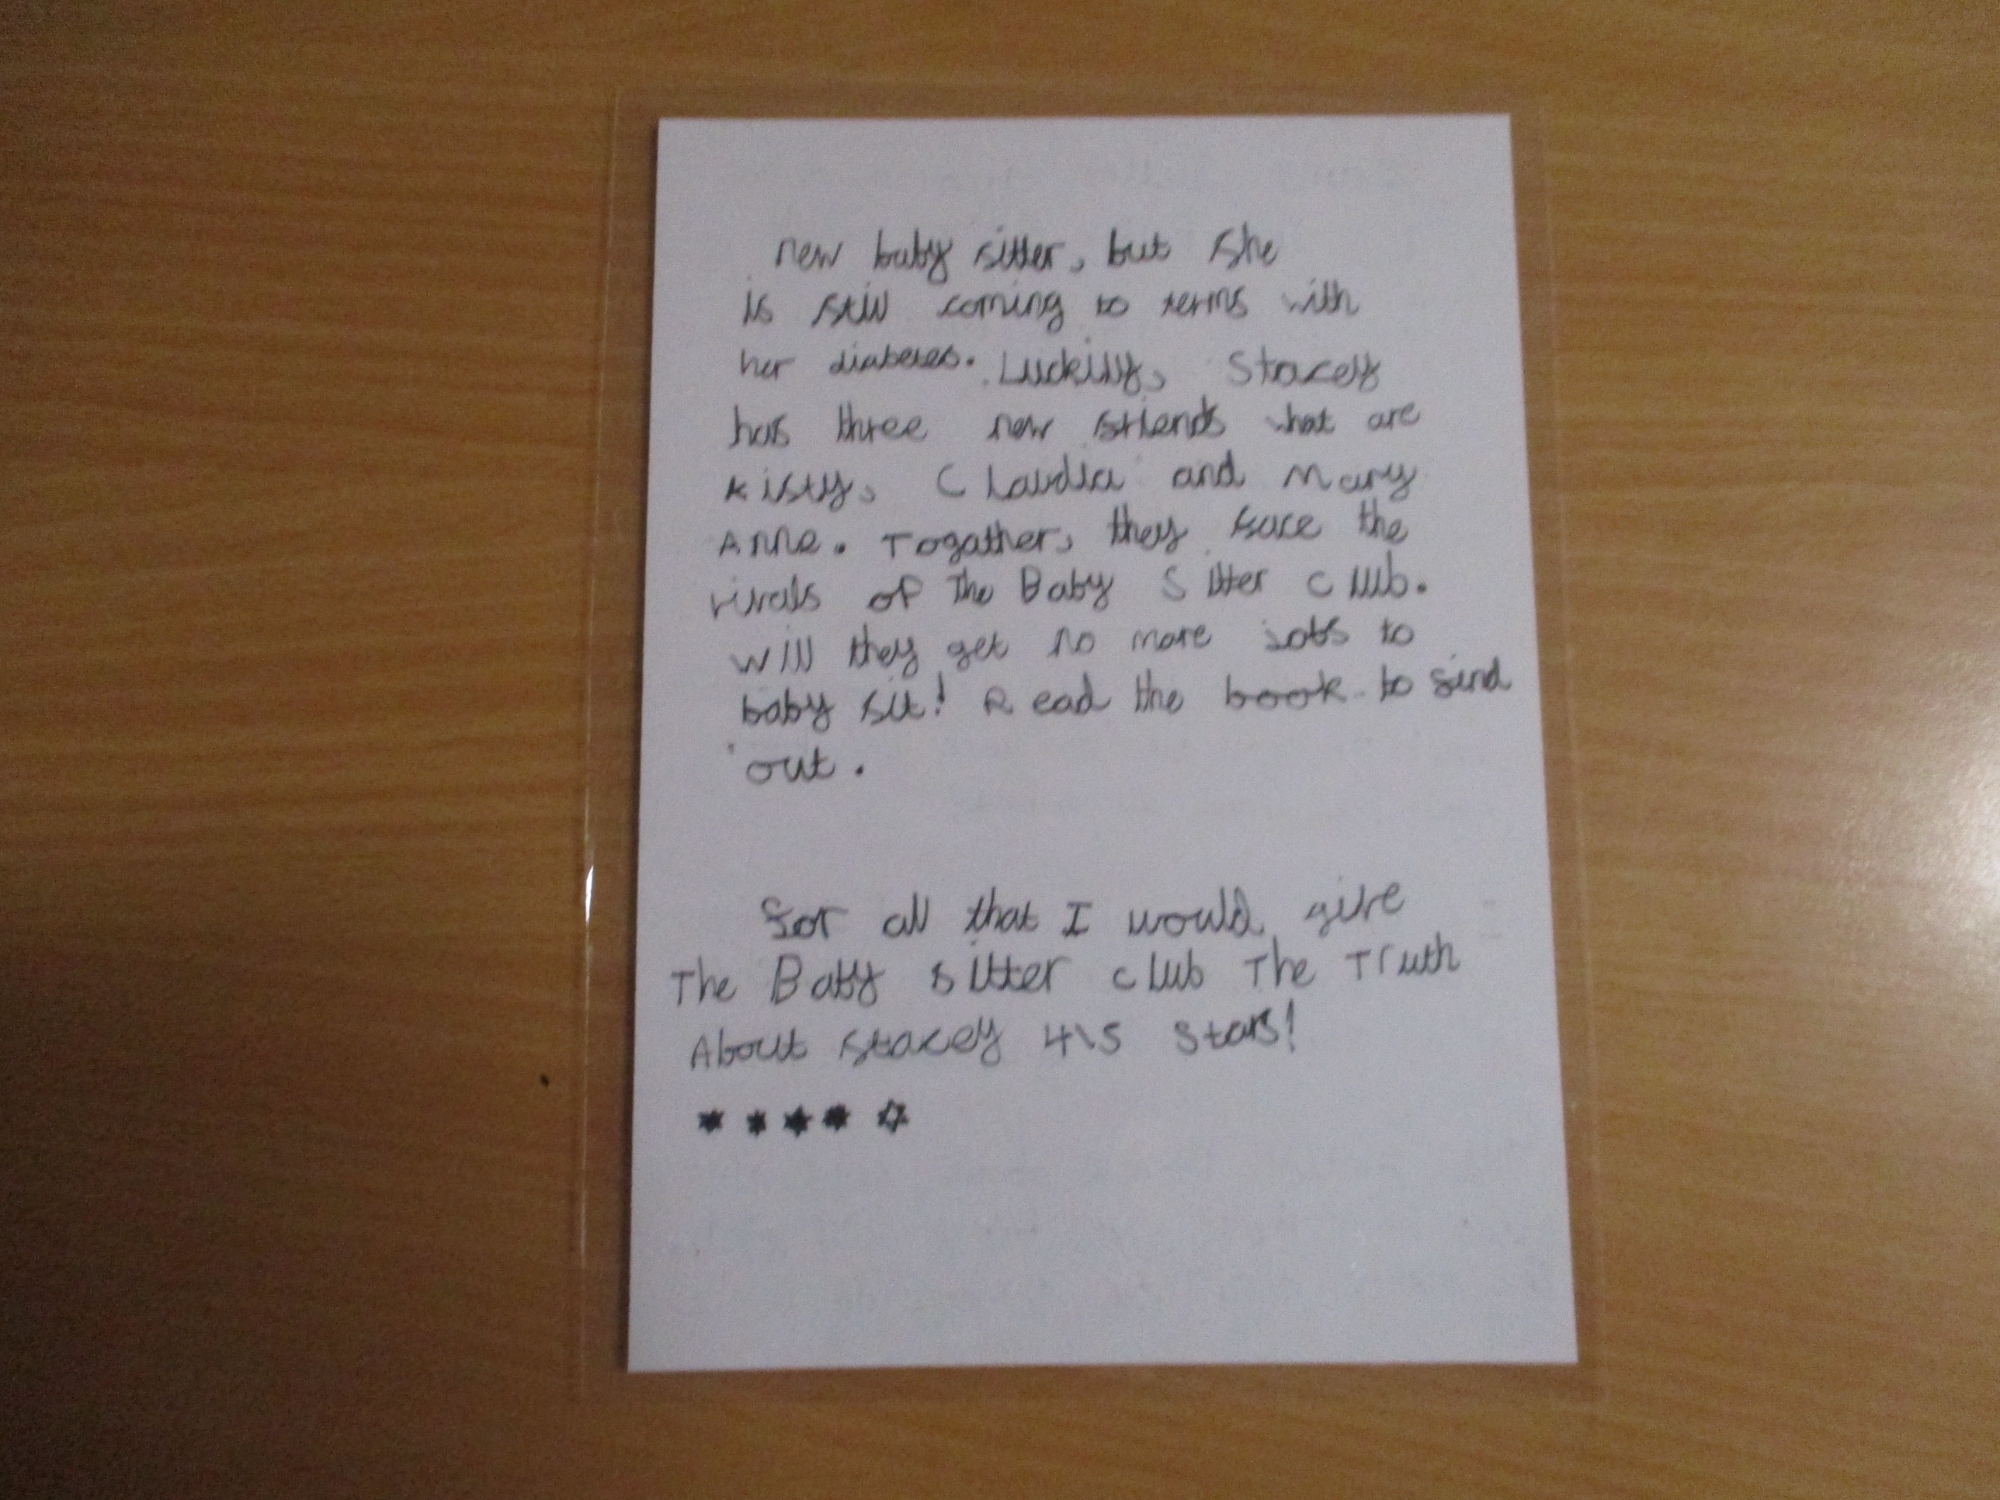 new baby sitter, but she
is still coming to terms with
her diabetes. Luckilly, Stacey
has three new friends that are
Kisty, Claudia and Mary
Anne. Togather, they face the
rivals of The Baby Sitter Club.
Will they get no more jobs to
baby sit! Read the book to find
out.
for all that I would give
The Baby Sitter Club The Truth
About Stacey 4\5 Stars!
★★★★☆